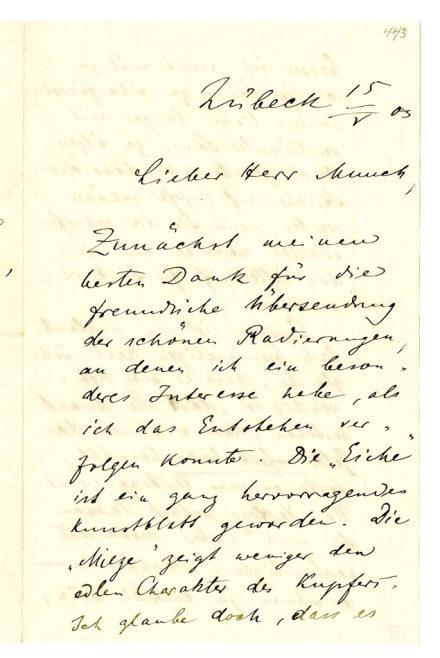 443
Lübeck 15/V 03
Lieber Herr Munch,
Zunächst meinen
besten Dank für die
freundliche Übersendung
der schönen Radierungen,
an denen ich ein beson-
deres Interesse habe, als
ich das Entstehen ver-
folgen konnte. Die „Eiche“
ist ein ganz hervorragendes
Kunstblatt geworden. Die
„Mieze“ zeigt weniger den
edlen Charakter des Kupfers.
Ich glaube doch, dass es